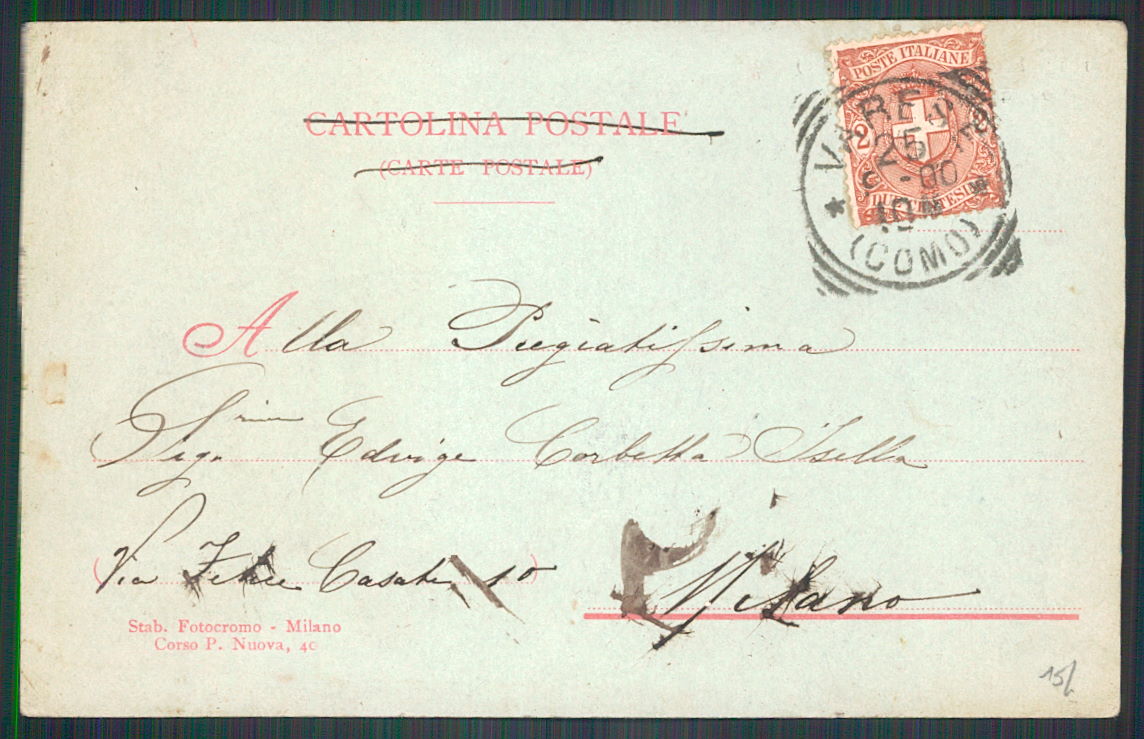 CARTOLINA POSTALE
(CARTE POSTALE)
POSTE ITALIANE
2
VARESE
25
-00
10 M
(COMO)
Alla Pregiatissima
Sigra Edvige Corbetta Isella
Via Felice Casati 10
Milano
Stab. Fotocromo - Milano
Corso P. Nuova, 40
15/